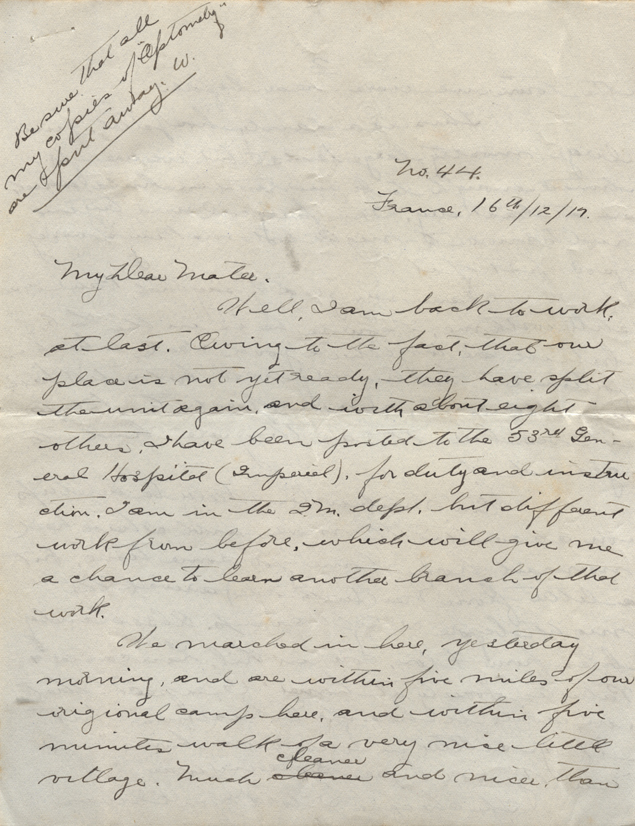 Be sure that all
my copies of "Optometry"
are sent away. W.
No. 44.
France, 16th/12/17.
My Dear Mater.
Well, I am back to work,
at last. Owing to the fact, that our
place is not yet ready, they have split
the unit again, and with about eight
others, I have been posted to the 53rd Gen-
eral Hospital (Imperial), for duty and instru
ction. I am in the Q.M. dept. but different
work from before, which will give me
a chance to learn another branch of that
work.
We marched in here, yesterday
morning, and are within five miles of our
origional camp here, and within five
minutes walk of a very nice little
cleaner
village. Much and nicer, than